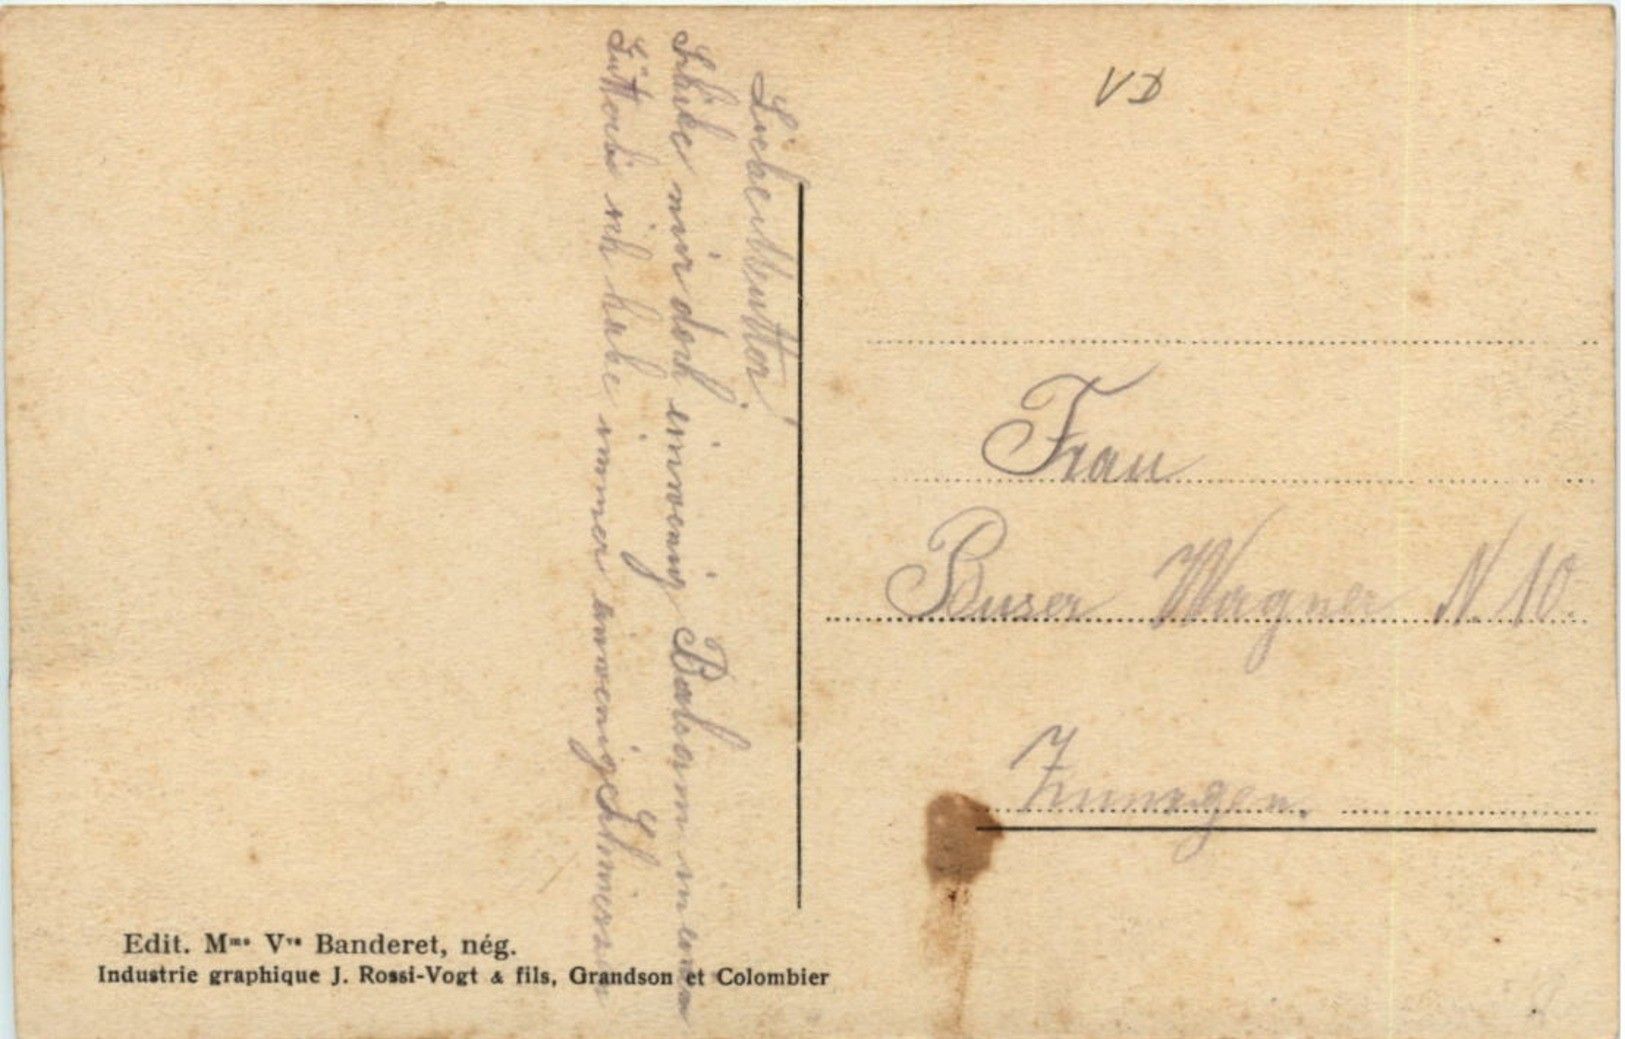 VD
Liebe Mutter!
Schicke mir doch einwenig Balsam in einem
ich habe immer
Frau
Buser Wagner N. 10.
Zunzgen.
Edit. Mme Vve Banderet, nég.
Industrie graphique J. Rossi-Vogt & fils, Grandson et Colombier